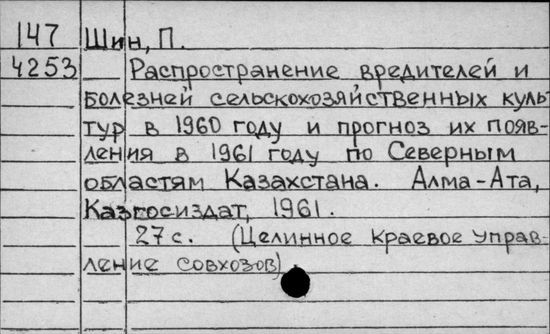 147 Шин, П.
4253 Распространение вредителей и
болезней сельскохозяйственных куль-
тур в 1960 году и прогноз их появ-
ления в 1961 году по Северным
областям Казахстана. Алма-Ата,
Казгосиздат, 1961.
27 с. (Целинное краевое управ-
ление совхозов)